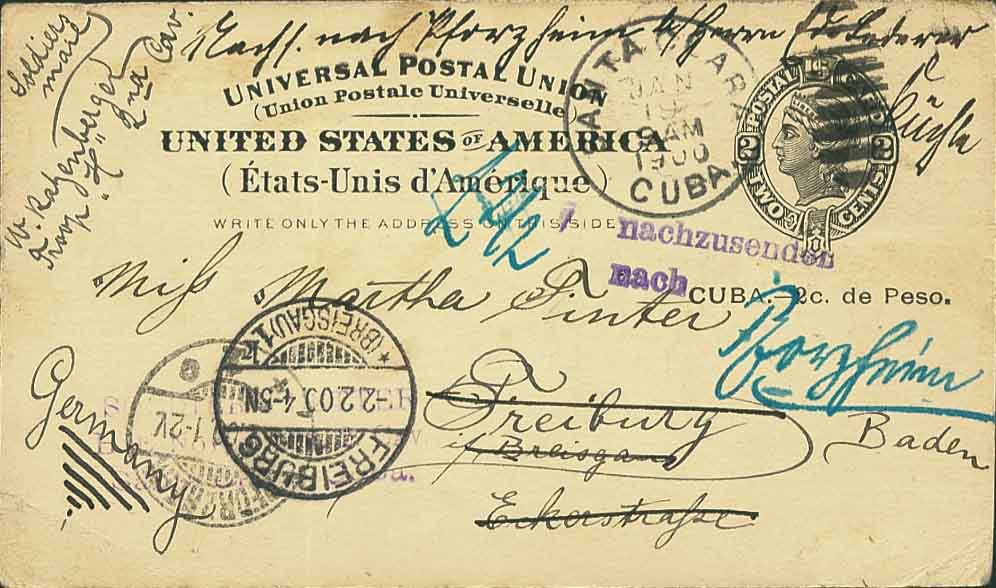 Soldiers
mail
W. Katzenberger
Troop "H"
2nd Cav.
Nachs. nach Pforzheim b/ Herrn Ed. Lederer
Küchle
UNIVERSAL POSTAL UNION
(Union Postale Universelle)
UNITED STATES OF AMERICA
(États-Unis d'Amérique)
WRITE ONLY THE ADDRESS ON THIS SIDE
SANTA CLARA
JAN
19
9 AM
1900
CUBA
POSTAL CARD
2 2
TWO CENTS
CUBA.—2c. de Peso.
nachzusenden
nach
Pforzheim
Miss Martha Pinter
Freiburg
i/ Breisgau
Baden
Eckerstraße
Germany
* (BREISGAU) 1
-2.2.00. 4-5N
FREIBURG
1-2V.